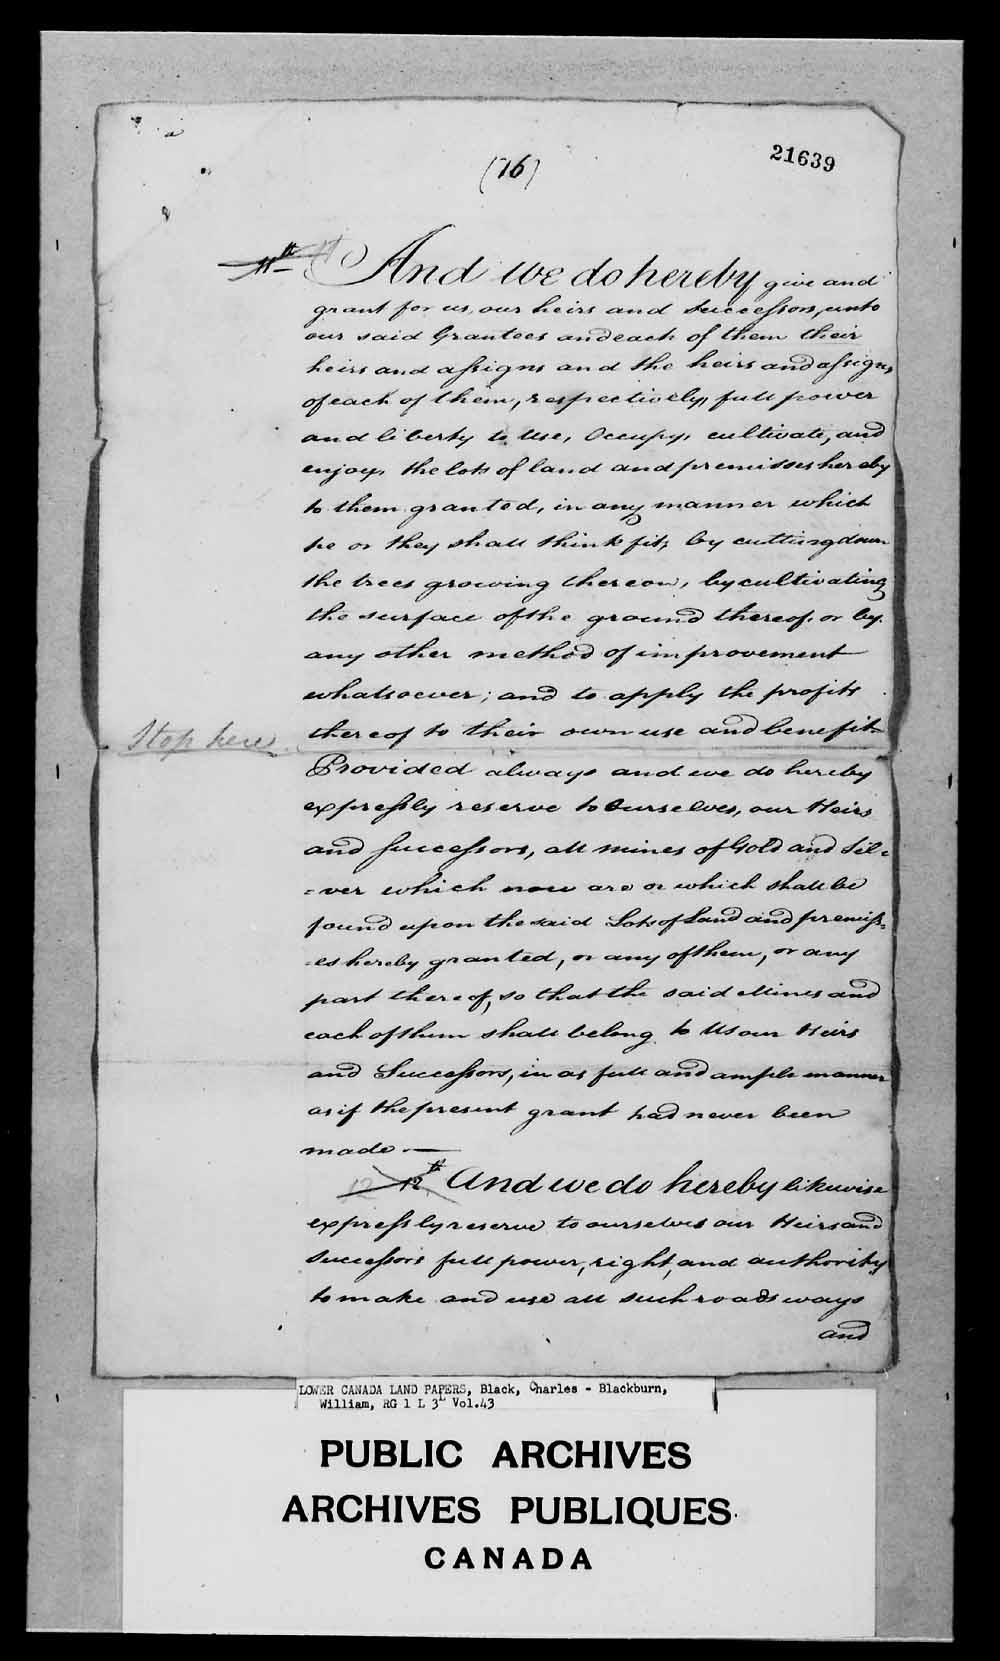 (16)
21639
11th And we do hereby give and
grant for us, our heirs and Successors, unto
our said Grantees and each of them their
heirs and assigns and the heirs and assigns,
of each of them, respectively, full power
and liberty to Use, Occupy, cultivate, and
enjoy, the lots of land and premisses hereby
to them granted, in any manner which
he or they shall think fit; by cutting down
the trees growing thereon, by cultivating
the surface of the ground thereof, or by
any other method of improvement
whatsoever; and to apply the profits
thereof to their own use and benefit
Stop here
Provided always and we do hereby
expressly reserve to Ourselves, our Heirs
and Successors, all mines of Gold and Sil-
-ver which now are or which shall be
found upon the said Lots of Land and premiss-
-es hereby granted, or any of them, or any
part thereof, so that the said Mines and
each of them shall belong to Us our Heirs
and Successors, in as full and ample manner
as if the present grant had never been
made.—
12 12th And we do hereby likewise
expressly reserve to ourselves our Heirs and
Successors full power, right, and authority
to make and use all such roads ways
and
LOWER CANADA LAND PAPERS, Black, Charles - Blackburn,
William, RG 1 L 3L Vol.43
PUBLIC ARCHIVES
ARCHIVES PUBLIQUES
CANADA